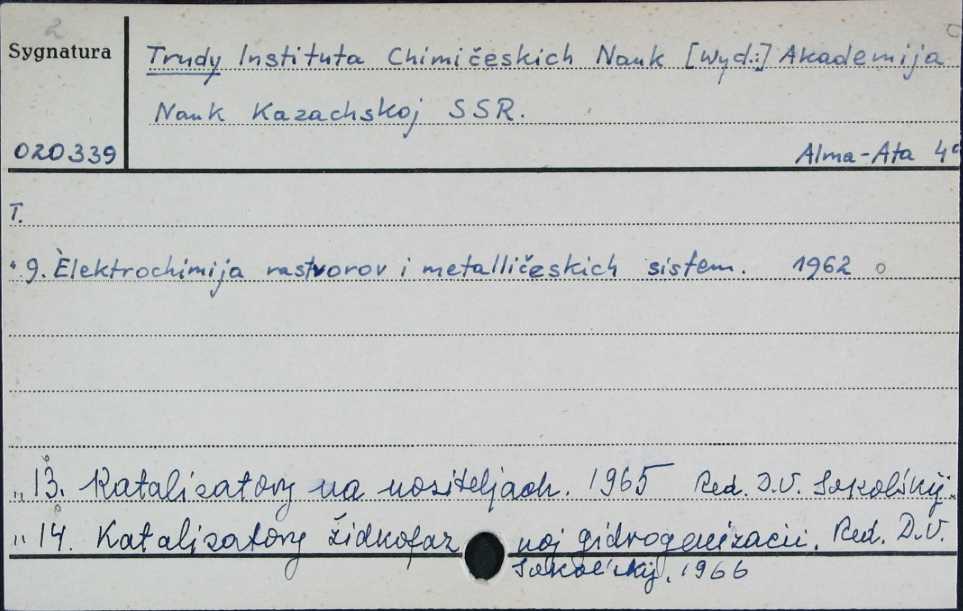 2
Sygnatura
Trudy Instituta Chimičeskich Nauk [Wyd.:] Akademija
Nauk Kazachskoj SSR.
020339
Alma-Ata 4°
T.
" 9. Èlektrochimija rastvorov i metalličeskich sistem. 1962
" 13. Katalizatory na nositeljach. 1965 Red. D.V. Sokol'skij.
" 14. Katalizatory židkofaznoj gidrogenizacii. Red. D.V.
Sokol'skij. 1966